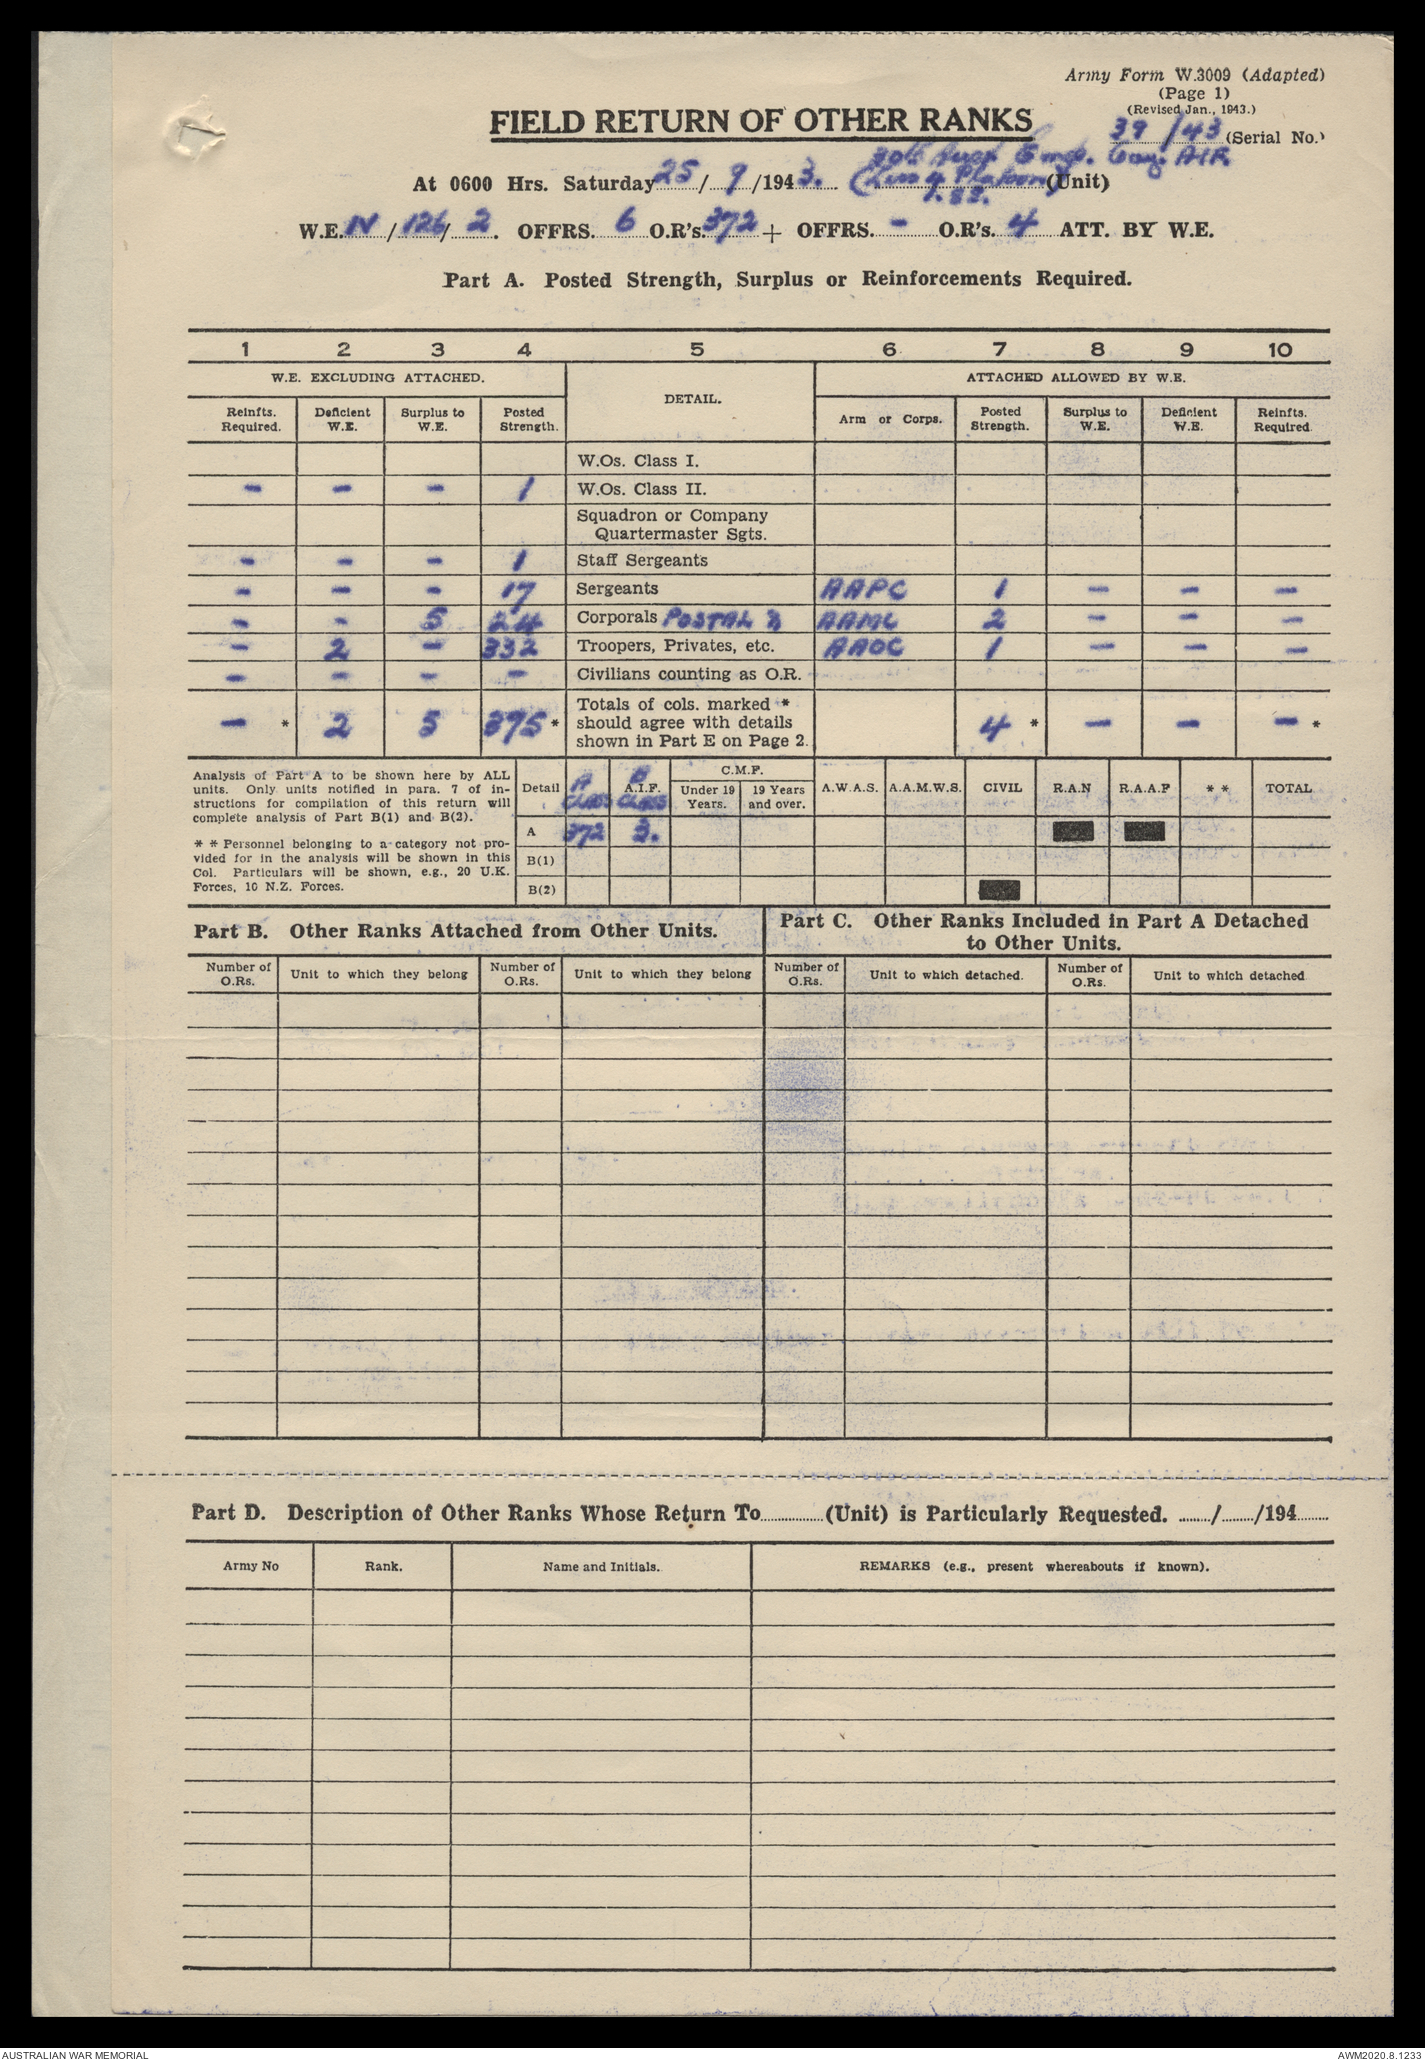 Army Form W.3009 (Adapted)
(Page 1)
(Revised Jan., 1943.)
FIELD RETURN OF OTHER RANKS
39/43 (Serial No.)
Emp. Coy. AIF
At 0600 Hrs. Saturday 25/9/1943. (Less 4 Platoon) (Unit)
W.E. IV/126/2. OFFRS. 6 O.R's. 372 + OFFRS. - O.R's. 4 ATT. BY W.E.
Part A. Posted Strength, Surplus or Reinforcements Required.
1 2 3 4 5 6 7 8 9 10
W.E. EXCLUDING ATTACHED. DETAIL. ATTACHED ALLOWED BY W.E.
Reinfts. Required. Deficient W.E. Surplus to W.E. Posted Strength. Arm or Corps. Posted Strength. Surplus to W.E. Deficient W.E. Reinfts. Required
W.Os. Class I.
- - - 1 W.Os. Class II.
Squadron or Company
Quartermaster Sgts.
- - - 1 Staff Sergeants
- - - 17 Sergeants AAPC 1 - - -
- - 5 24 Corporals POSTAL AAMC 2 - - -
- 2 - 332 Troopers, Privates, etc. AAOC 1 - - -
- - - - Civilians counting as O.R.
- * 2 5 375 * Totals of cols. marked * should agree with details shown in Part E on Page 2. 4 * - - - *
Analysis of Part A to be shown here by ALL
units. Only units notified in para. 7 of in-
structions for compilation of this return will
complete analysis of Part B(1) and B(2).
* * Personnel belonging to a category not pro-
vided for in the analysis will be shown in this
Col. Particulars will be shown, e.g., 20 U.K.
Forces, 10 N.Z. Forces.
Detail A CLASS A.I.F. B CLASS C.M.F. Under 19 Years. 19 Years and over. A.W.A.S. A.A.M.W.S. CIVIL R.A.N R.A.A.F * * TOTAL
A 372 3.
B(1)
B(2)
Part B. Other Ranks Attached from Other Units.
Part C. Other Ranks Included in Part A Detached
to Other Units.
Number of O.Rs. Unit to which they belong Number of O.Rs. Unit to which they belong Number of O.Rs. Unit to which detached. Number of O.Rs. Unit to which detached
Part D. Description of Other Ranks Whose Return To............(Unit) is Particularly Requested. ......./......./194.......
Army No Rank. Name and Initials. REMARKS (e.g., present whereabouts if known).
AUSTRALIAN WAR MEMORIAL AWM2020.8.1233